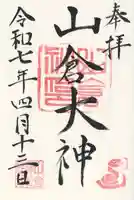 奉拝
山倉大神
令和七年四月十三日